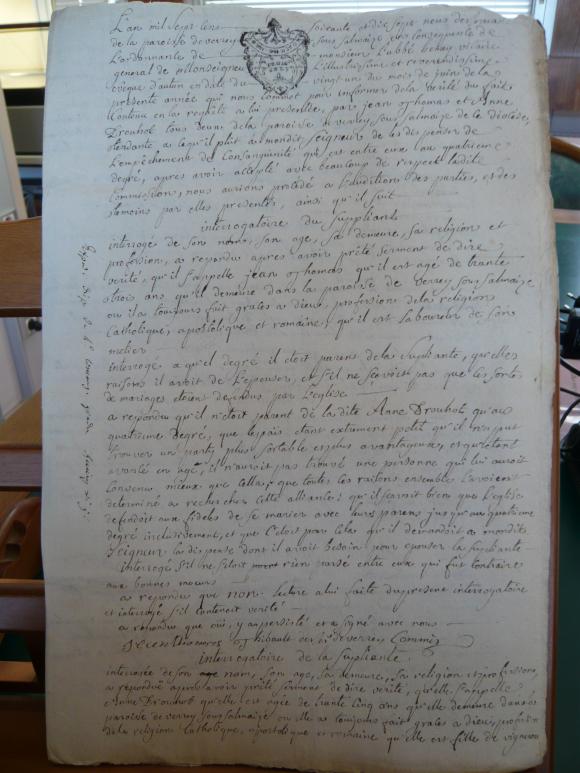 L'an mil sept cens soixante et dix sept nous
de la paroisse de verrey sous salmaize en consequence de
L'ordonnance de monsieur L'abbé vicaire
general de monseigneur L'illustrissime et reverendissime
évêque d'autun en date du vingt un du mois de juin de la
presente année qui nous commet pour informer de la verité du fait
contenu en la requête a lui presentée, par jean thomas et Anne
Drouhot tous deux de la paroisse de verrey sous salmaize de ce diocèse,
tendante a ce qu'il plût a mondit seigneur de les dispenser de
L'empêchement de consanguinité qui est entre eux au quatrieme
degré, après avoir accepté avec beaucoup de respect ladite
Commission, nous aurions procédé a L'audition des parties, et des
temoins par elles presentés, ainsi qu'il suit
interrogatoire du suppliants
interrogé de son nom, son age, sa demeure, sa religion et
profession, a repondu apres avoir prêté serment de dire
verité, qu'il s'appelle jean thomas qu'il est agé de trante
trois ans qu'il demeure dans la paroisse de verrey sous salmaize
ou il a toujours fait grâces a dieu, profession de la religion
Catholique, apostolique et romaine, qu'il est Laboureur de son
metier
interrogé a quel degré il étoit parent de la supliante, quelles
raisons il avoit de L'epouser, et s'il ne sçavoit pas que les sortes
de mariages étoient defendus par L'eglise
a repondu qu'il n'étoit parent de la dite Anne Drouhot qu'au
quatrieme degré, que le païs étant extremement petit qu'il ne put
trouver un party plus sortable et plus avantageux, et qu'étant
avancé en age, il n'auroit pas trouvé une personne qui lui auroit
convenu mieux que cella, que toutes les raisons ensemble l'avoient
determiné a rechercher cette alliance, qu'il sçavoit bien que L'eglise
defendoit aux fideles de se marier avec leurs parens jusqu'au quatrieme
degré inclusivement, et que c'étoit pour cela qu'il demandoit a mondit
seigneur la dispense dont il avoit besoin pour epouser la supliante
interrogé s'il ne s'étoit rien passé entre eux qui fut contraire
aux bonnes moeurs
a repondu que non. lecture a lui faite du present interrogatoire
et interrogé s'il contenoit verité
a repondu que oüi, y a persisté et a signé avec nous
Thibault de verrey Commis
interrogatoire de la supliante.
interrogée de son nom, son age, sa demeure, sa religion et profession,
a repondu après avoir prêté serment de dire verité, qu'elle s'appelle
Anne Drouhot qu'elle est agée de trante cinq ans qu'elle demeure dans la
paroisse de verrey sous salmaize ou elle a toujours fait grâces a dieu, profession
de la religion Catholique, apostolique et romaine qu'elle est fille de vigneron